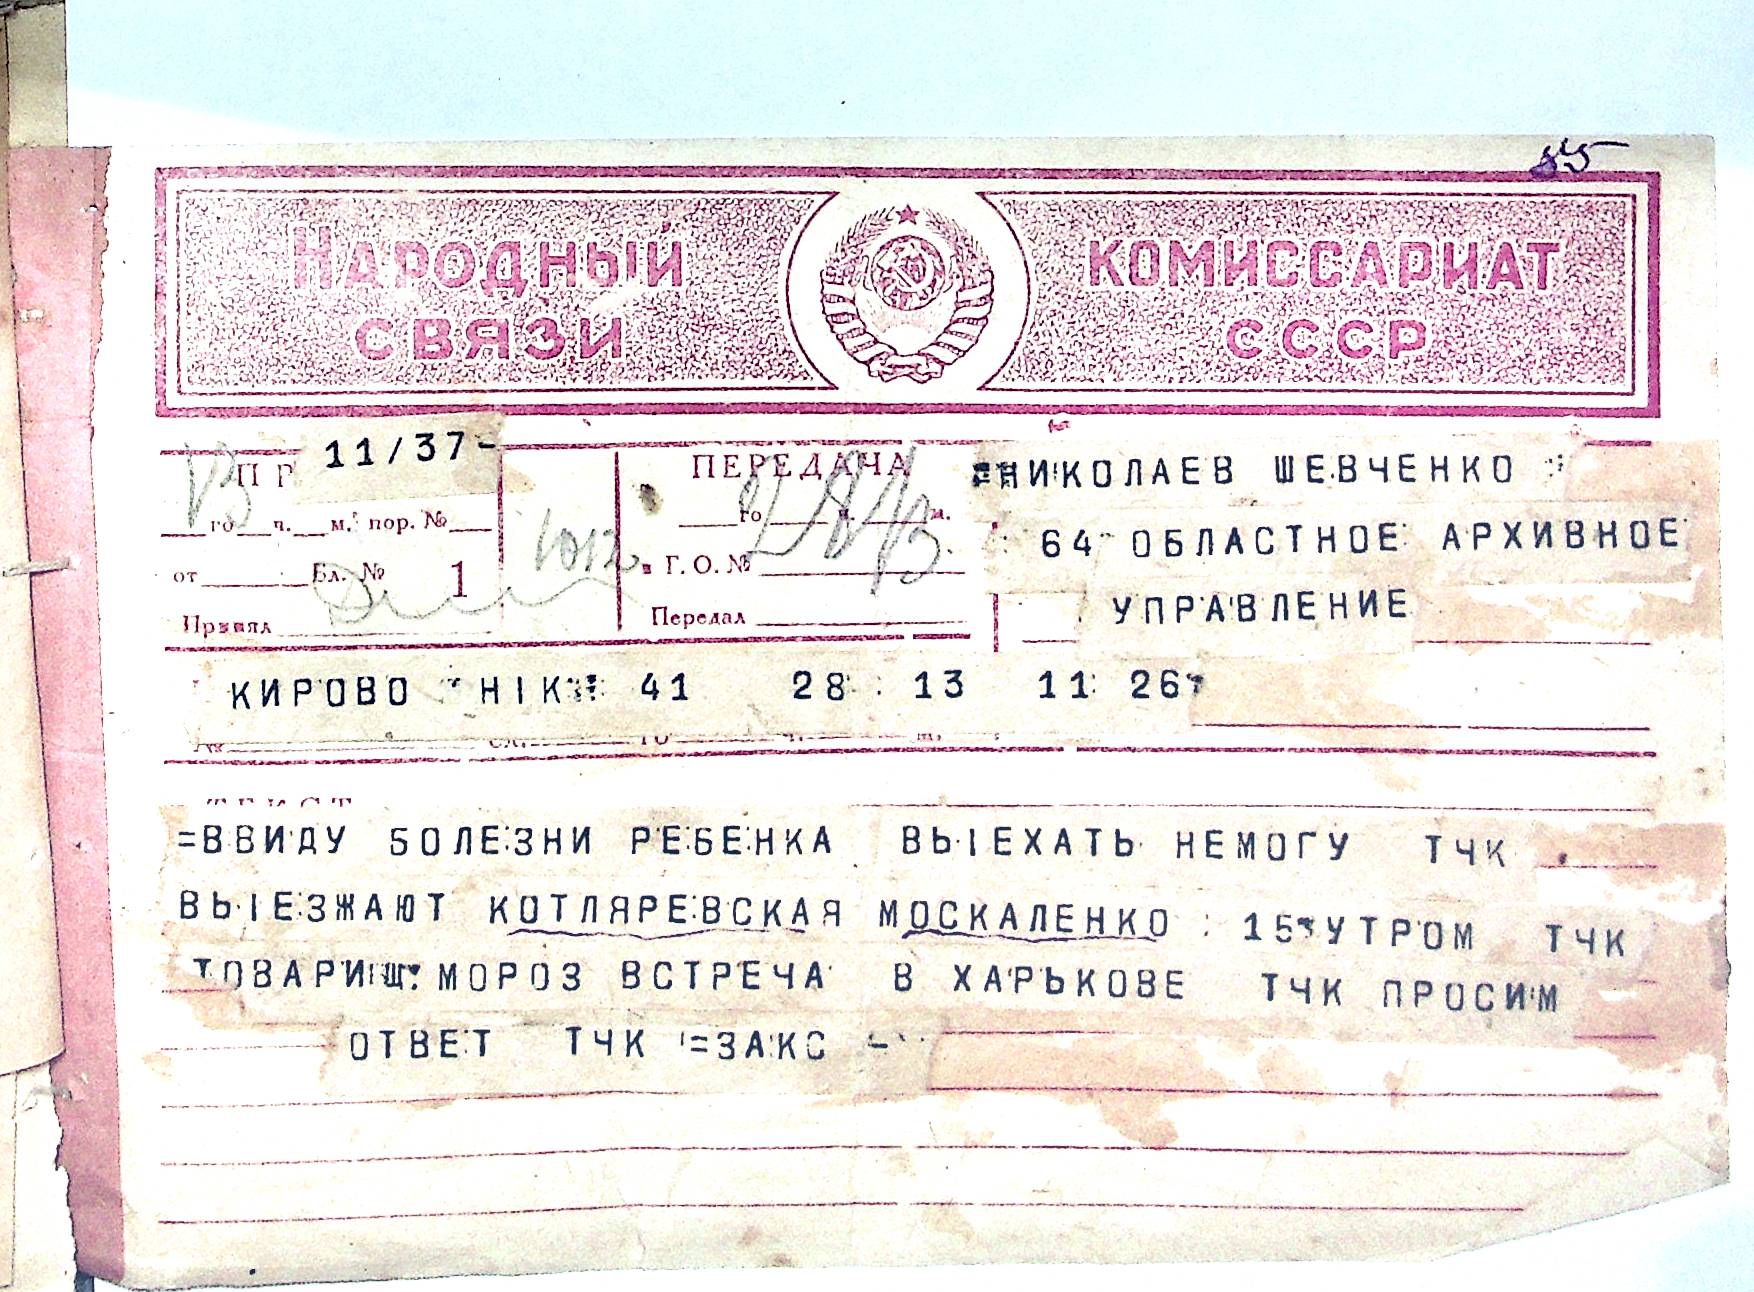 85
НАРОДНЫЙ КОМИССАРИАТ
СВЯЗИ СССР
ПР 11/37-
го ч. м. пор. №
от Бл. № 1
Принял
ПЕРЕДАЧА
го ч. м.
в Г. О. №
Передал
=НИКОЛАЕВ ШЕВЧЕНКО
64 ОБЛАСТНОЕ АРХИВНОЕ
УПРАВЛЕНИЕ
КИРОВО НІК 41 28 13 11 26
ТЕКСТ
=ВВИДУ БОЛЕЗНИ РЕБЕНКА ВЫЕХАТЬ НЕМОГУ ТЧК
ВЫЕЗЖАЮТ КОТЛЯРЕВСКАЯ МОСКАЛЕНКО 15 УТРОМ ТЧК
ТОВАРИЩ МОРОЗ ВСТРЕЧА В ХАРЬКОВЕ ТЧК ПРОСИМ
ОТВЕТ ТЧК =ЗАКС -